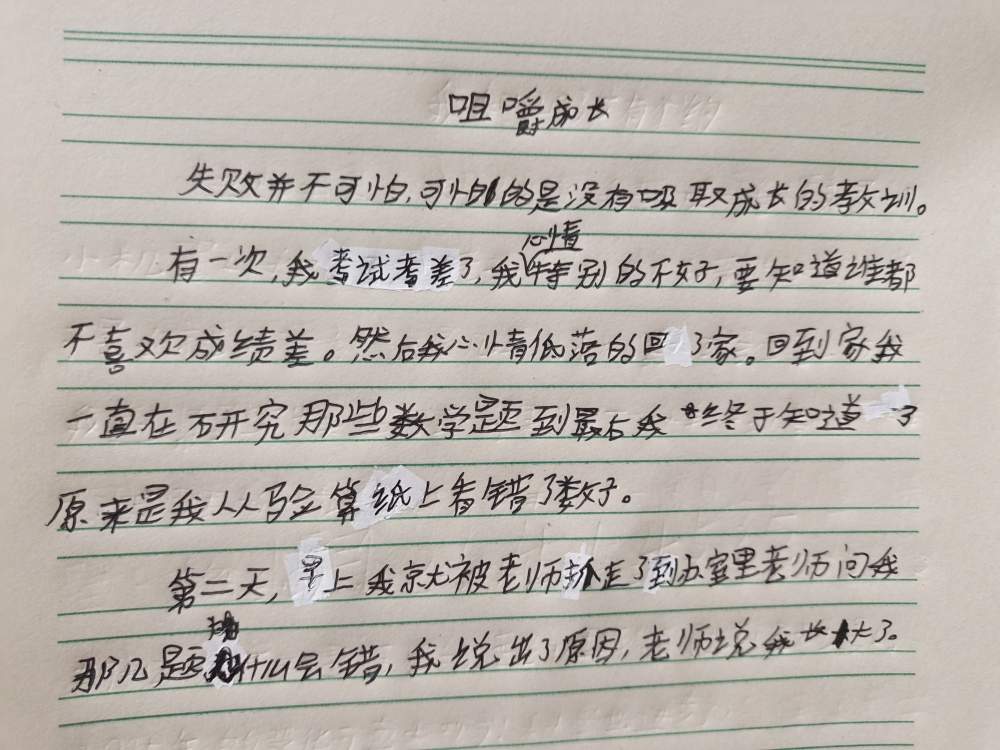 咀嚼成长
失败并不可怕,可怕的是没有吸取成长的教训。
有一次,我考试考差了,我心情特别的不好,要知道谁都
不喜欢成绩差。然后我心情低落的回了家。回到家我
一直在研究那些数学题到最后我终于知道了
原来是我从验算纸上看错了数好。
第二天,早上我就被老师抓走了到办室里老师问我
那几题为什么会错,我说出了原因,老师说我长大了。